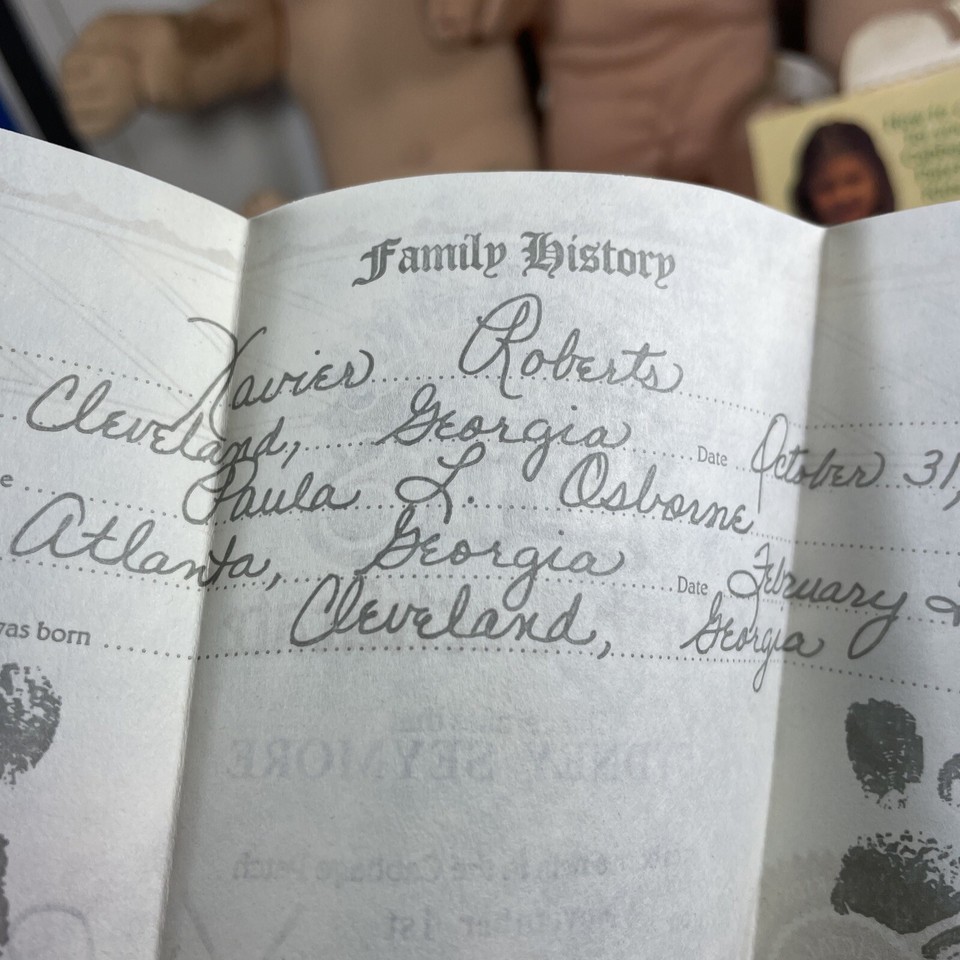 Family History
Xavier Roberts
Cleveland, Georgia Date October 31,
Paula L. Osborne
Atlanta, Georgia Date February
was born Cleveland, Georgia
SEYMORE
the Cabbage Patch
1st